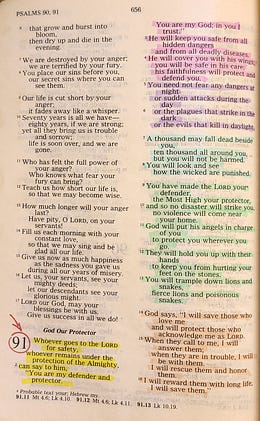 PSALMS 90, 91
656
6 that grow and burst into
bloom,
then dry up and die in the
evening.
7 We are destroyed by your anger;
we are terrified by your fury.
8 You place our sins before you,
our secret sins where you can
see them.
9 Our life is cut short by your
anger;
it fades away like a whisper.
10 Seventy years is all we have—
eighty years, if we are strong;
yet all they bring us is trouble
and sorrow;
life is soon over, and we are
gone.
11 Who has felt the full power of
your anger?
Who knows what fear your
fury can bring?
12 Teach us how short our life is,
so that we may become wise.
13 How much longer will your anger
last?
Have pity, O LORD, on your
servants!
14 Fill us each morning with your
constant love,
so that we may sing and be
glad all our life.
15 Give us now as much happiness
as the sadness you gave us
during all our years of misery.
16 Let us, your servants, see your
mighty deeds;
let our descendants see your
glorious might.
17 LORD our God, may your
blessings be with us.
Give us success in all we do!
God Our Protector
91 Whoever goes to the LORD
for safety,
whoever remains under the
protection of the Almighty,
2 can say to him,
"You are my defender and
protector.
You are my God; in you I
trust."
3 He will keep you safe from all
hidden dangers
and from all deadly diseases.
4 He will cover you with his wings;
you will be safe in his care;
his faithfulness will protect and
defend you.
5 You need not fear any dangers at
night
or sudden attacks during the
day
6 or the plagues that strike in the
dark
or the evils that kill in daylight.
7 A thousand may fall dead beside
you,
ten thousand all around you,
but you will not be harmed.
8 You will look and see
how the wicked are punished.
9 You have made the LORD your
defender,
the Most High your protector,
10 and so no disaster will strike you,
no violence will come near
your home.
11 God will put his angels in charge
of you
to protect you wherever you
go.
12 They will hold you up with their
hands
to keep you from hurting your
feet on the stones.
13 You will trample down lions and
snakes,
fierce lions and poisonous
snakes.
14 God says, "I will save those who
love me
and will protect those who
acknowledge me as LORD.
15 When they call to me, I will
answer them;
when they are in trouble, I will
be with them.
I will rescue them and honor
them.
16 I will reward them with long life;
I will save them."
Probable text; Hebrew my.
91.11 Mt 4.6; Lk 4.10. 91.12 Mt 4.6; Lk 4.11. 91.13 Lk 10.19.